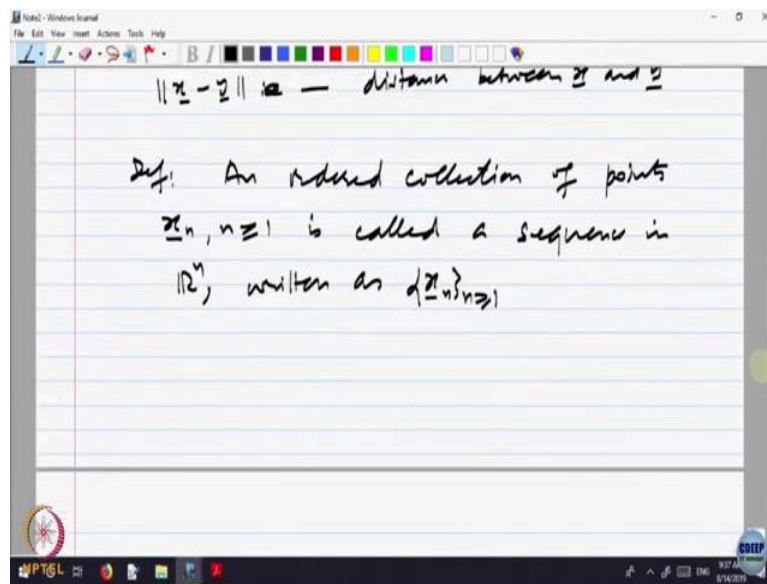 Note2 - Windows Journal
File Edit View Insert Actions Tools Help
B I
||x - y|| is — distance between x and y
Def: An ordered collection of points
x_n, n ≥ 1 is called a sequence in
ℝⁿ, written as {x_n}_{n≥1}
NPTEL
CDEEP
ENG
8/14/2019